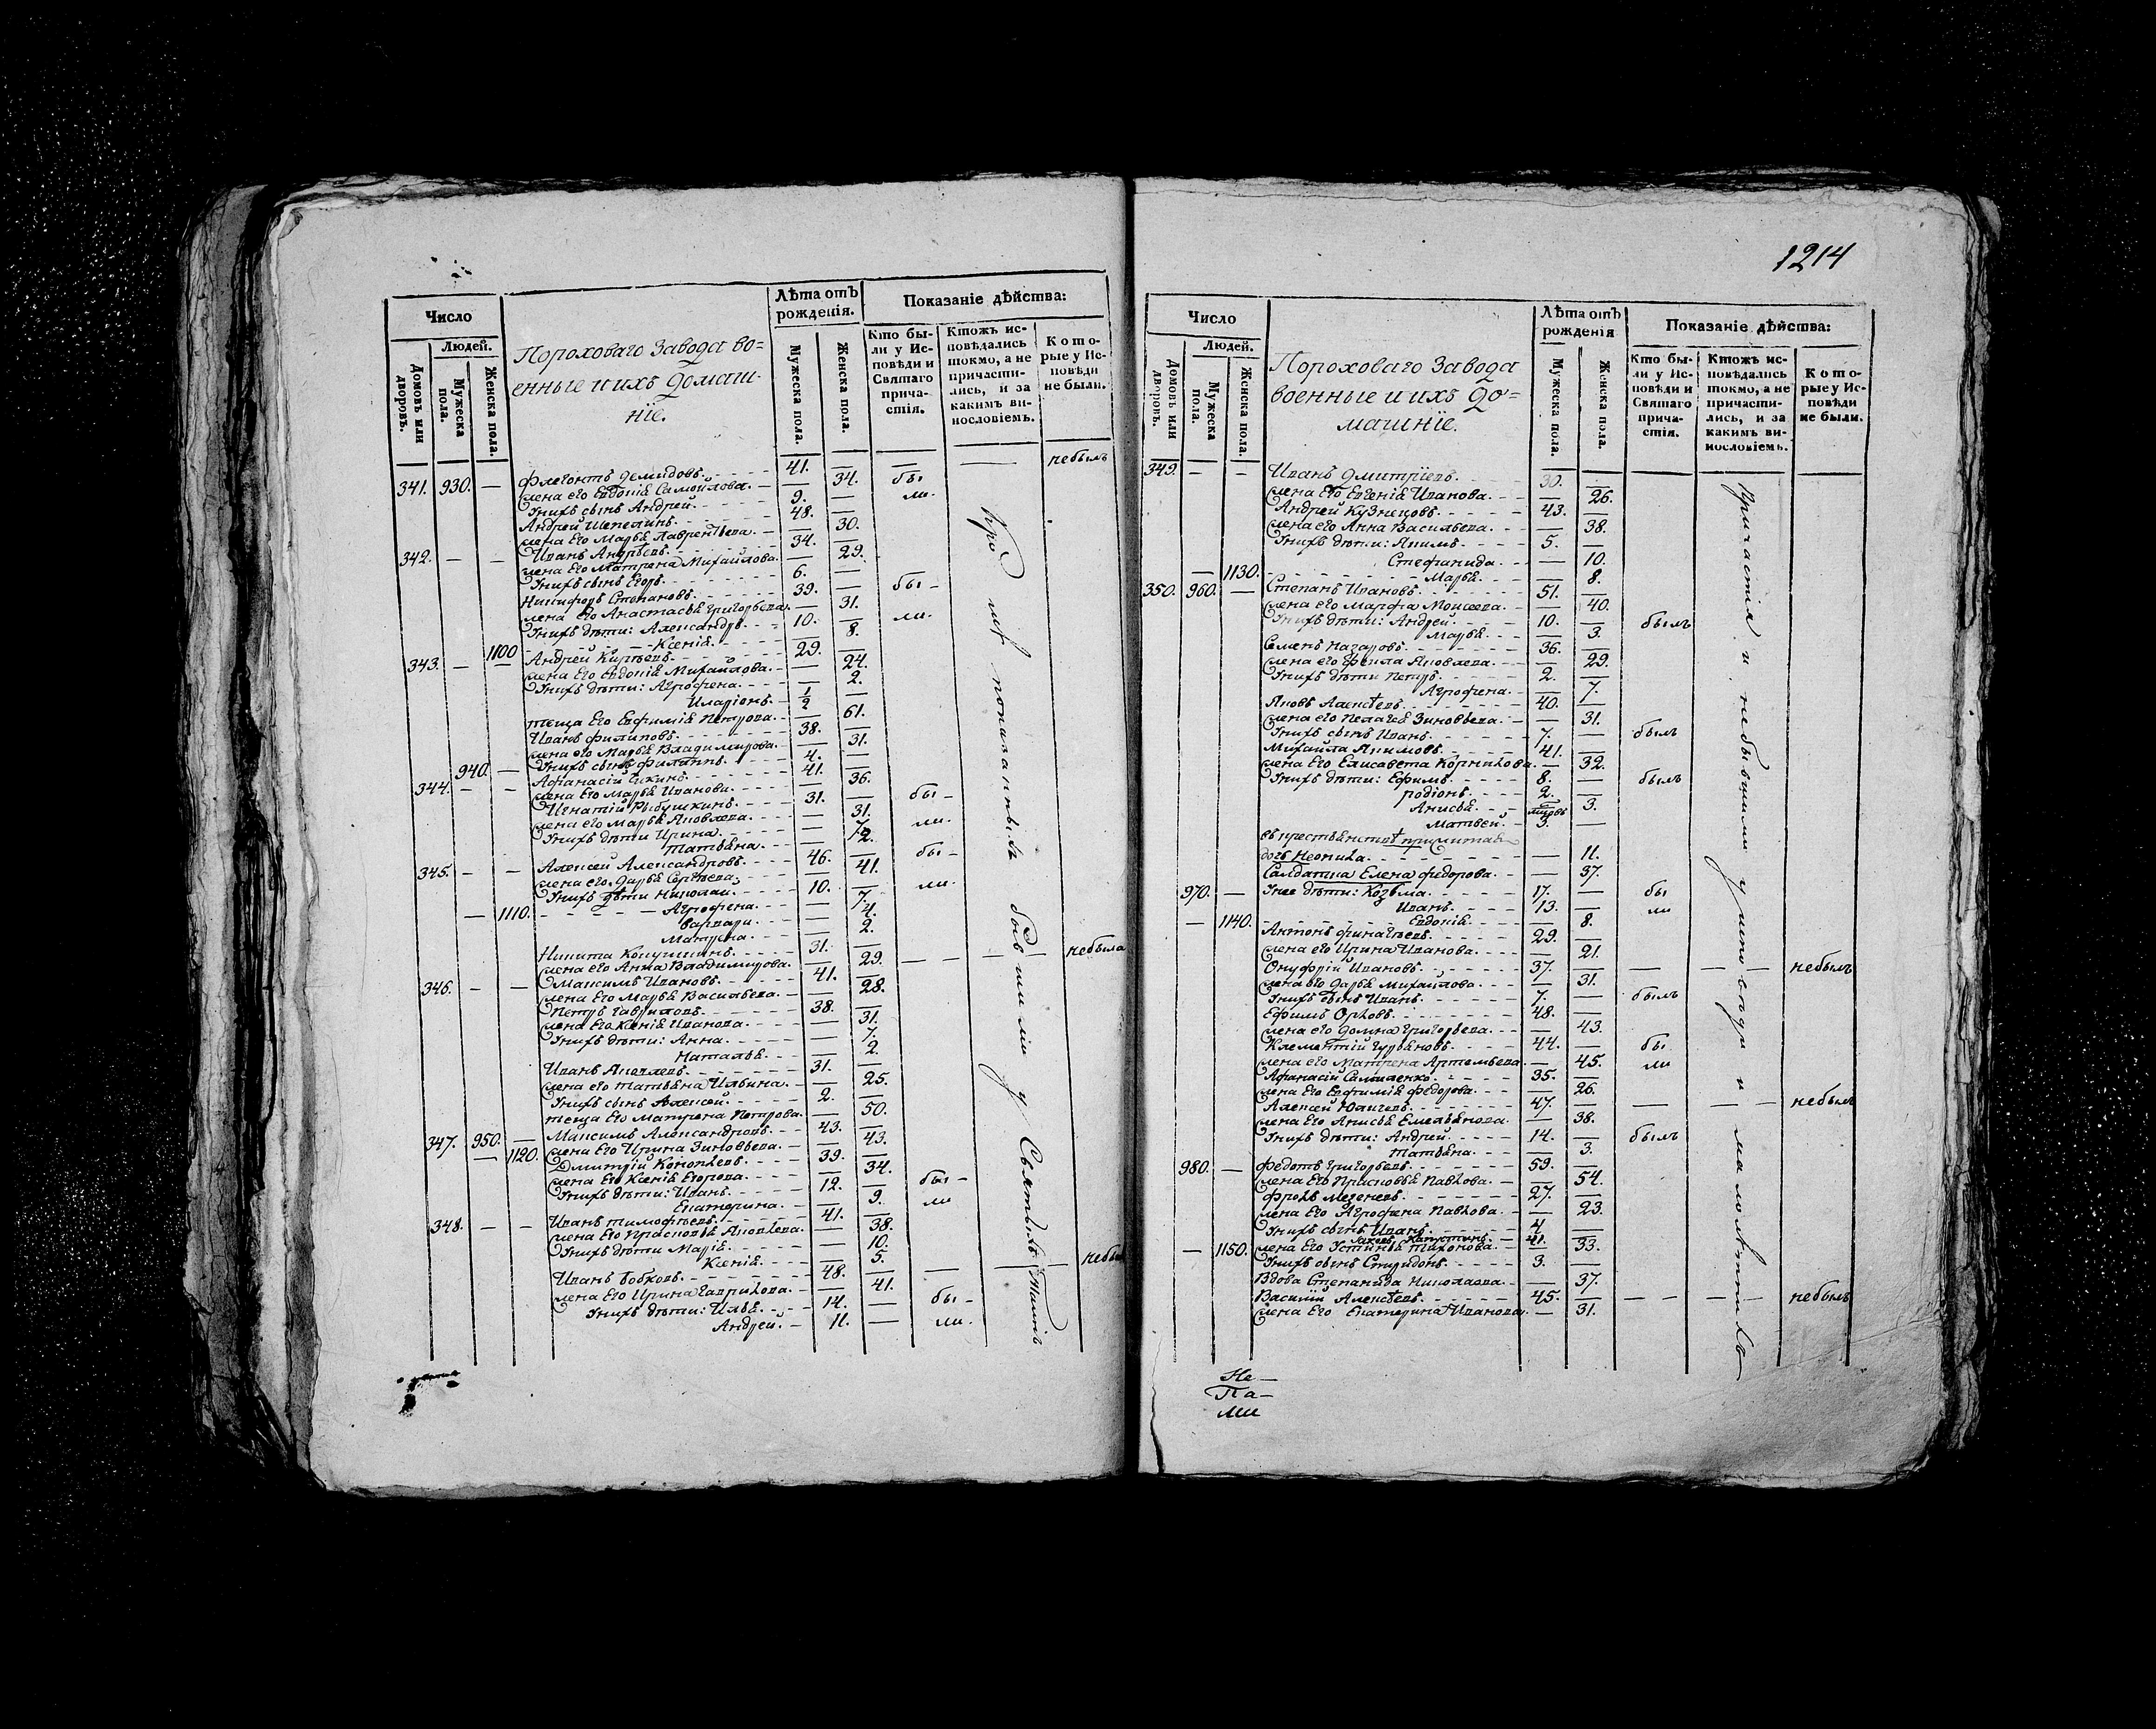 Число
Людей.
Домовъ или дворовъ.
Мужеска пола.
Женска пола.
Пороховаго Завода во=
енные и ихъ домаш-
нїе.
Лѣта отъ рожденія.
Мужеска пола.
Женска пола.
Показаніе дѣйства:
Кто бы-
ли у Ис-
повѣди и
Святаго
прича-
стія.
Ктожъ ис-
повѣдались
токмо, а не
причасти-
лись, и за
какимъ ви-
нословіемъ.
Кото-
рые у Ис-
повѣди
не были.
341. 930. — Флегонтъ Демидовъ. 41. — небылъ
жена его Евдокія Самойлова. — 34. бы
У нихъ сынъ Андрей. 9. — ли.
Андрей Шепелинъ. 48. —
жена Его Марья Лаврентьева. — 30.
342. — — Иванъ Андрѣевъ. 34. —
жена Его Матрена Михайлова. — 29.
У нихъ сынъ Егоръ. 6. —
Никифоръ Степановъ. 39. — бы-
жена Его Анастасья Григорьева. — 31.
У нихъ дѣти: Александръ. 10. — ли.
1100 Ксенія. — 8.
343. — — Андрей Кирѣевъ. 29. —
жена Его Евдокія Михайлова. — 24.
У нихъ дѣти: Агрофена. — 2.
Иларіонъ. 1/2 —
теща Его Евфимія Петрова. — 61.
Иванъ Филиповъ. 38. —
жена его Марья Владимирова. — 31.
940. — У нихъ сынъ Филиппъ. 4. —
344. — — Афанасій Чикинъ. 41. —
жена Его Марья Иванова. — 36.
Игнатій Рыбушкинъ. 31. — бы-
жена его Марья Яковлева. — 31.
У нихъ дѣти Ирина. — 7. ли.
Татьяна. — 2.
345. — — Алексей Александровъ. 46. — бы-
жена его Дарья Сергѣева. — 41.
У нихъ дѣти Николай. 10. — ли.
— 1110. Агрофена. — 7.
Варвара. — 4.
Матрена. — 2.
Никита Кокушкинъ. 31. —
жена его Анна Владимирова. — 29. — — — небыла
346. — — Максимъ Ивановъ. 41. —
жена Его Марья Васильева. — 28.
Петръ Гавриловъ. 38. —
жена Его Ксенія Иванова. — 31.
У нихъ дѣти: Анна. — 7.
Наталья. — 2.
Иванъ Яковлевъ. 31. —
жена его Татьяна Ильина. — 25.
У нихъ сынъ Алексей. 2. —
теща Его Матрена Петрова. — 50.
347. 950. — Максимъ Александровъ. 43. —
— 1120. жена Его Ирина Зиновьева. — 43.
Дмитрій Коноплевъ. 39. —
жена Его Ксенія Егорова. — 34.
У нихъ дѣти: Иванъ. 12. — бы-
Екатерина. — 9. ли
348. — — Иванъ Тимофѣевъ. 41. —
жена Его Прасковья Яковлева. — 38.
У нихъ дѣти Марія. — 10.
Ксенія. — 5.
Иванъ Бобковъ. 48. — — — небы
жена Его Ирина Гаврилова. — 41.
У нихъ дѣти: Илья. 14. — бы-
Андрей. — 11. — ли.
Про их показанныхъ бывшими у Святыхъ Таинъ
1214
Число
Людей.
Домовъ или дворовъ.
Мужеска пола.
Женска пола.
Пороховаго Завода
военные и ихъ до=
машнїе.
Лѣта отъ рожденія
Мужеска пола.
Женска пола.
Показаніе дѣйства:
Кто бы-
ли у Ис-
повѣди и
Святаго
прича-
стія.
Ктожъ ис-
повѣдались
токмо, а не
причасти-
лись, и за
какимъ ви-
нословіемъ.
Кото-
рые у Ис-
повѣди
не были.
349. — — Иванъ Дмитрїевъ. 30. —
жена Его Евгенія Иванова. — 26.
Андрей Кузнецовъ. 43. —
жена его Анна Васильева. — 38.
У нихъ дѣти: Якимъ. 5. —
Стефанида. — 10.
— 1130. Марья. — 8.
350. 960. — Степанъ Ивановъ. 51. —
жена его Марфа Моисеева. — 40.
У нихъ дѣти: Андрей. 10. — былъ
Марья. — 3.
Семенъ Назаровъ. 36. —
жена его Фекла Яковлева. — 29.
У нихъ дѣти Петръ. 2. —
Агрофена. — 7.
Яковъ Алексѣевъ. 40. —
жена его Пелагея Зиновьева. — 31.
У нихъ сынъ Иванъ. 7. — былъ
Михайла Якимовъ. 41. —
жена Его Елисавета Корнилова. — 32.
У нихъ дѣти: Ефимъ. 8. — былъ
Родіонъ. 2. —
Анисья. — 3.
Матвей. 3. —
дочь Неонила. — 11.
Салдатка Елена Федорова. — 37.
970. — У нее дѣти: Козьма. 17. — бы
Иванъ. 13. — ли
— 1140. Евдокія. — 8.
Антонъ Финагѣевъ. 29. —
жена его Ирина Иванова. — 21.
Онуфрій Ивановъ. 37. — — — — небылъ
жена его Дарья Михайлова. — 31.
У нихъ сынъ Иванъ. 7. — былъ
Ефимъ Орловъ. 48. —
жена его Домна Григорьева. — 43.
Клементій Гурьяновъ. 44. — бы
жена его Матрена Артемьева. — 45. ли
Афанасій Самыленко. 35. —
жена Его Евфимія Федорова. — 26.
Алексей Юдичевъ. 47. — — — небылъ
жена Его Анисья Емельянова. — 38.
У нихъ дѣти: Андрей. 14. — былъ
Татьяна. — 3.
980. — Федотъ Григорьевъ. 59. —
жена Его Прасковья Павлова. — 54.
Фролъ Мезеневъ. 27. —
жена Его Агрофена Павлова. — 23.
У нихъ сынъ Иванъ. 4 —
Яковъ Капустинъ. — 41.
— 1150. жена Его Устинья Тихонова. — 33.
У нихъ сынъ Спиридонъ. 3. —
Вдова Степанида Николаева. — 37.
Василій Алексѣевъ. 45. — — — — небылъ
жена Его Екатерина Иванова. — 31.
Причастія и небывшими у
Не-
Па-
ми